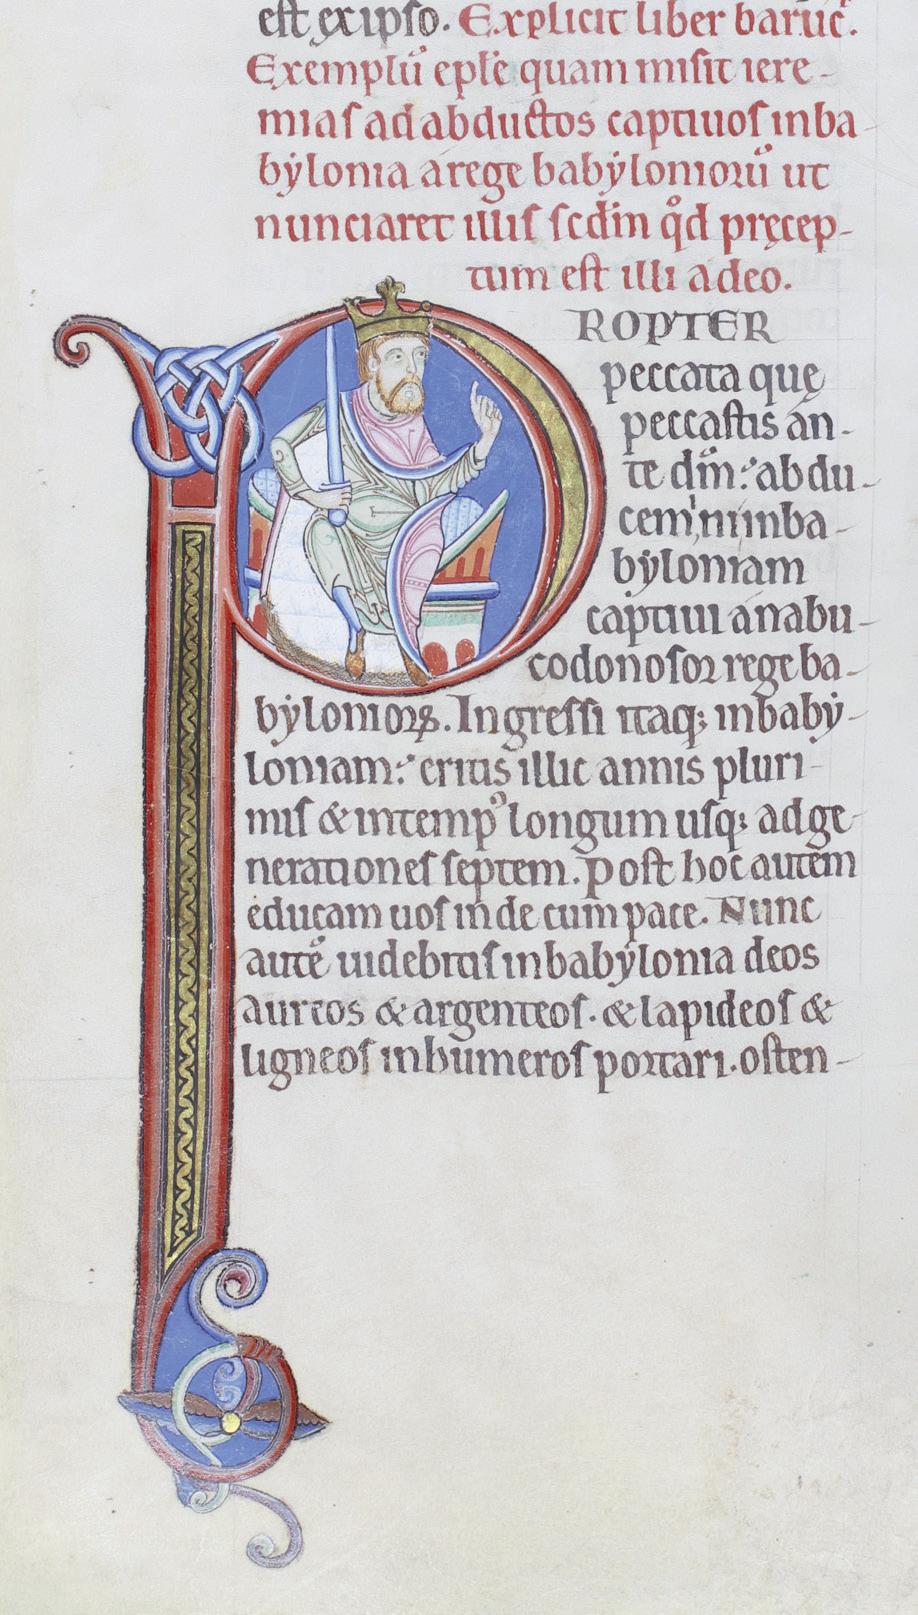 est ex ipso. Explicit liber baruc.
Exemplū eplē quam misit iere-
mias ad abductos captiuos in ba-
bylonia a rege babyloniorū ut
nunciaret illis scdm̄ qd̄ precep-
tum est illi a deo.
PROPTER
peccata que
peccastis an-
te dm̄: abdu-
cemini in ba-
byloniam
captiui a nabu-
codonosor rege ba-
byloniorꝝ. Ingressi itaq; in baby-
loniam: eritis illic annis pluri-
mis & in temp᷒ longum usq; ad ge-
nerationes septem. Post hoc autem
educam uos inde cum pace. Nunc
autē uidebitis in babylonia deos
aureos & argenteos. & lapideos &
ligneos in humeros portari. osten-